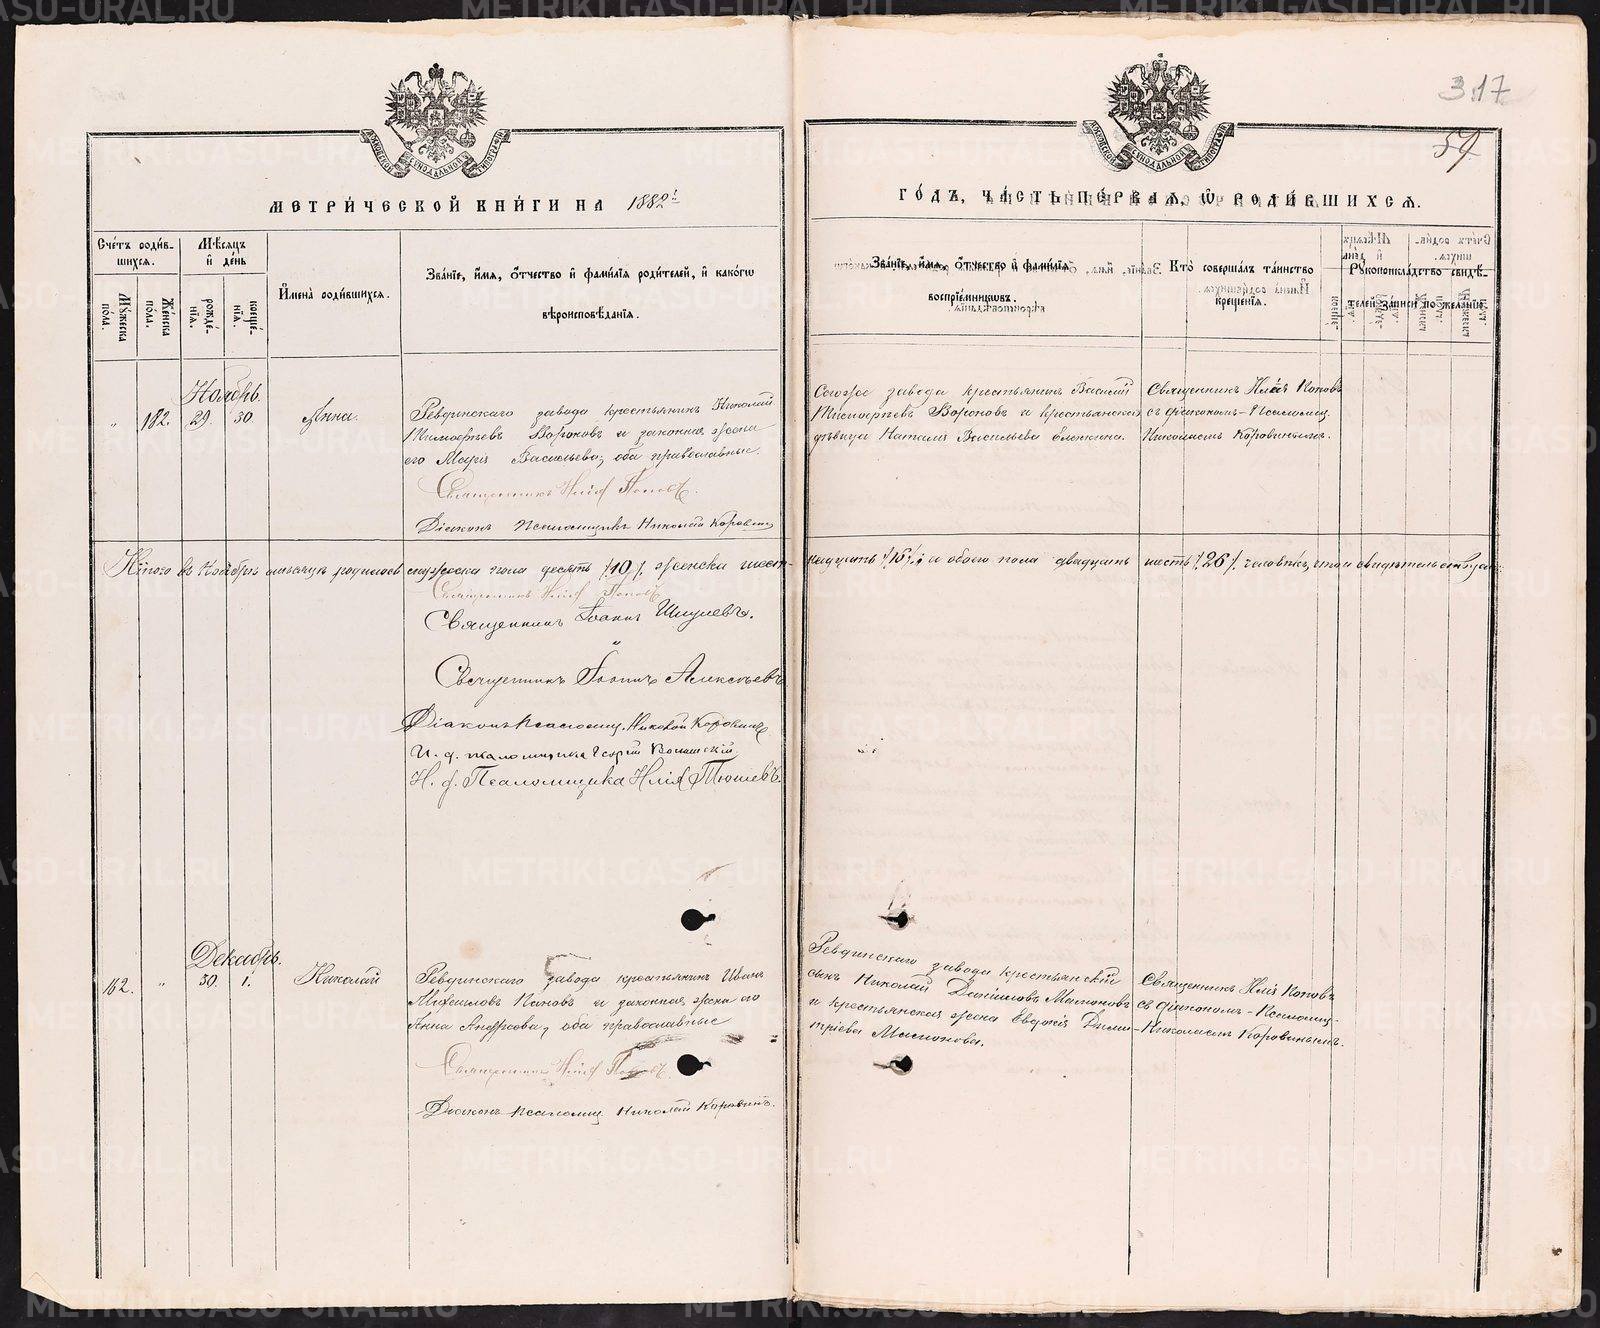 317
59
МЕТРИ́ЧЕСКОЙ КНИ́ГИ НА 1882й
ГО́ДЪ, ЧА́СТЬ ПЕ́РВАЯ, Ѽ РОДИ́ВШИХСѦ.
Сче́тъ роди́в-
шихсѧ.
Мꙋ́жеска по́ла.
Же́нска по́ла.
Мѣ́сѧцъ
и҆ де́нь
рожде́-
нїѧ.
креще́-
нїѧ.
И҆мена̀ роди́вшихсѧ.
Зва́нїе, и҆́мѧ, ѻ҆́тчество и҆ фами́лїѧ роди́телей, и҆ како́гѡ
вѣроисповѣ́данїѧ.
Зва́нїе, и҆́мѧ, ѻ҆́тчество и҆ фами́лїѧ
воспрїе́мникѡвъ.
Кто̀ соверша́лъ та́инство
креще́нїѧ.
Рꙋкоприкла́дство свидѣ́-
телей за́писи по жела́нїю.
Ноябрь.
" 182. 29. 30. Анна.
Ревдинскаго завода крестьянинъ Николай
Тимофѣевъ Вороновъ и законная жена
его Марія Васильева, оба православные.
Священникъ Илія Поповъ.
Діаконъ Псаломщикъ Николай Коровинъ
завода крестьянинъ Василій
Тимофѣевъ Вороновъ и крестьянская
дѣвица Наталія Васильева
Священникъ Илія Поповъ
съ діакономъ-Псаломщ.
Николаемъ Коровинымъ.
Итого въ Ноябрѣ мѣсяцѣ родилось мужеска пола десять /10/. женска шест-
надцать /16/. и обоего пола двадцать шесть /26/. человѣкъ, что и свидѣтельствуемъ
Священникъ Илія Поповъ
Священникъ Іоаннъ
Священникъ Іоаннъ Алексѣевъ
Діаконъ Псаломщ. Николай Коровинъ
И. д. псаломщика Георгій
И. д. Псаломщика Илія Тюшевъ.
Декабрь.
162. " 30. 1. Николай
Ревдинскаго завода крестьянинъ Иванъ
Михаиловъ Поповъ и законная жена его
Анна Андреева, оба православные
Священникъ Илія Поповъ.
Діаконъ Псаломщ Николай Коровинъ.
Ревдинскаго завода крестьянскій
сынъ Николай Даніиловъ Мамоновъ
и крестьянская жена Евдокія Дими-
тріева Мамонова.
Священникъ Илія Поповъ
съ діакономъ-Псаломщ-
Николаемъ Коровинымъ.
METRIKI.GASO-URAL.RU